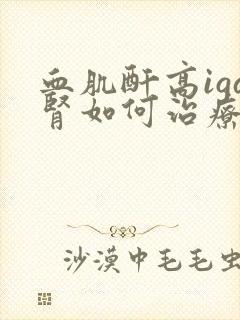 血肌酐高iga
肾如何治疗
沙漠中毛毛虫